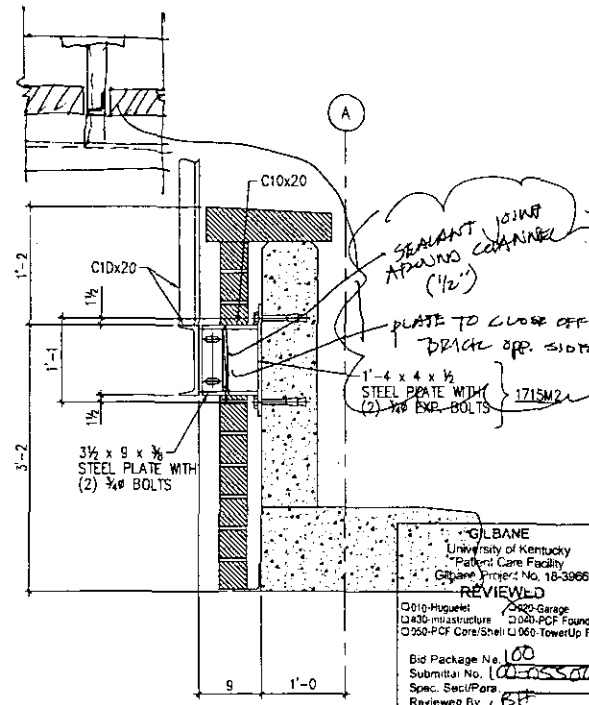 A
C10x20
SEALANT JOINT
AROUND CHANNEL
(1/2")
C10x20
1'-2
1½
PLATE TO CLOSE OFF
BRICK OPP. SIDE
1'-1
1'-4 x 4 x ½
STEEL PLATE WITH
(2) ¾ø EXP. BOLTS
1715M2
1½
3'-2
3½ x 9 x ⅜
STEEL PLATE WITH
(2) ¾ø BOLTS
9
1'-0
GILBANE
University of Kentucky
Patient Care Facility
Gilbane Project No. 18-3966
REVIEWED
010-Huguelet 020-Garage
030-Infrastructure 040-PCF Found
050-PCF Core/Shell 060-TowerUp F
Bid Package No. 100
Submittal No. 100-05500
Spec. Sect/Para.
Reviewed By BH